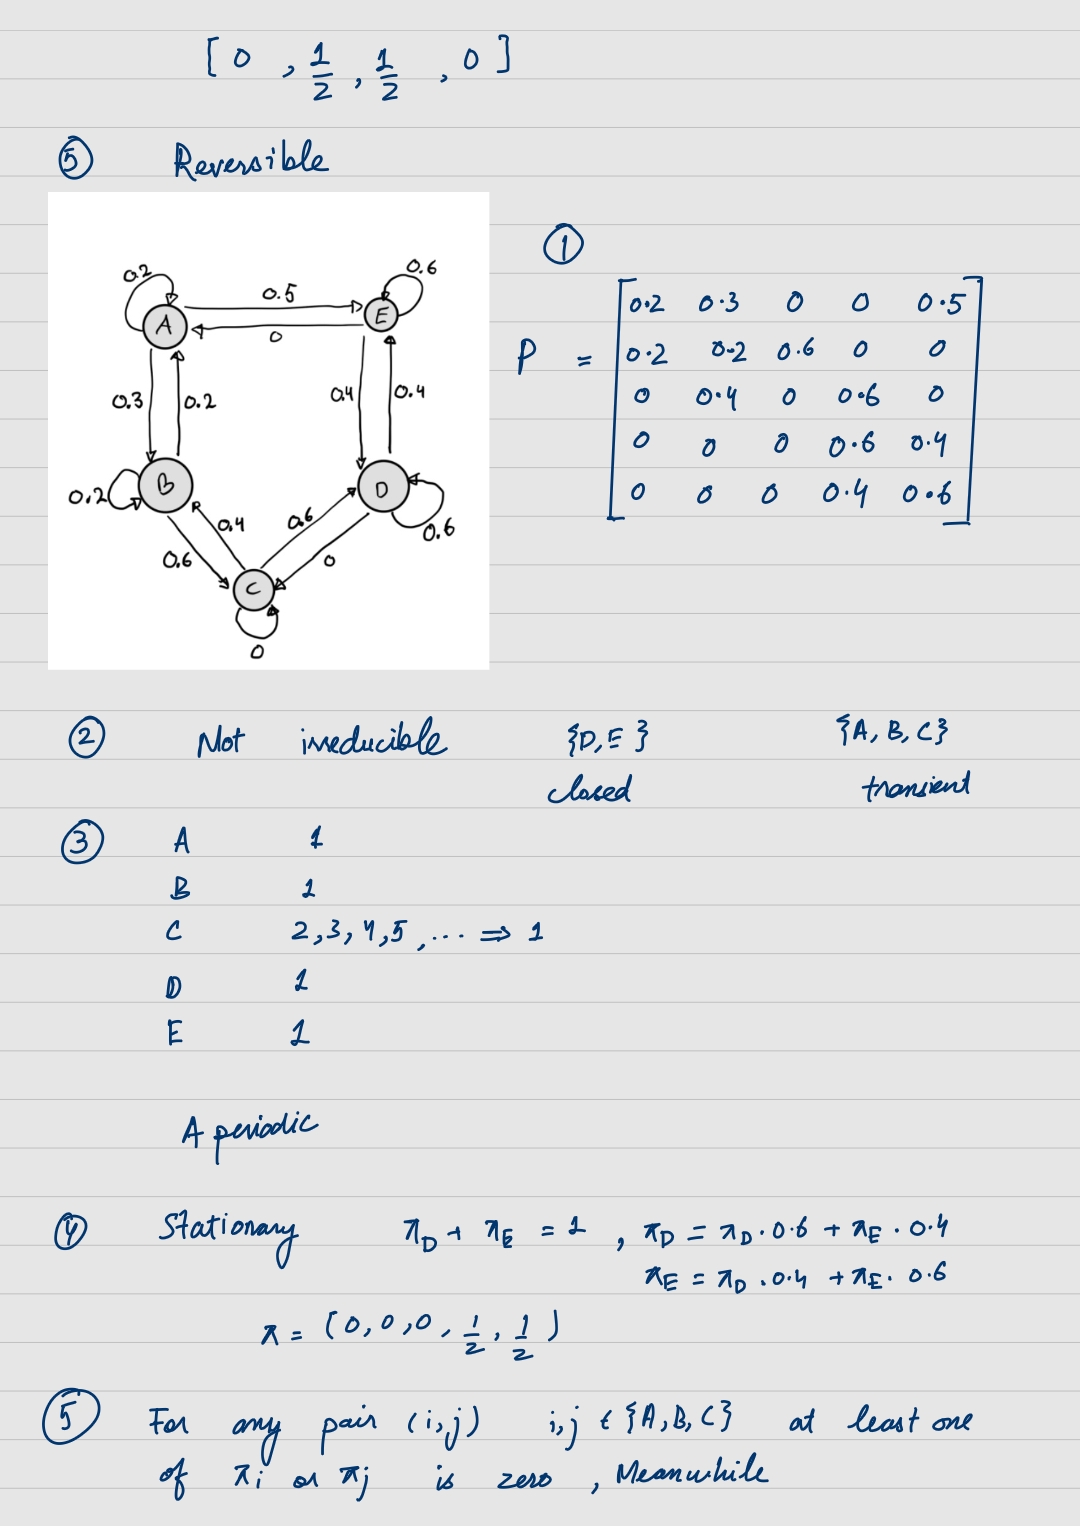 [ 0 , 1/2 , 1/2 , 0 ]
⑤ Reversible
0.2
0.6
0.5
A
E
0
0.3
0.2
0.4
0.4
B
D
0.2
0.4
0.6
0.6
0.6
0
C
0
①
P = [ 0.2 0.3 0 0 0.5
0.2 0.2 0.6 0 0
0 0.4 0 0.6 0
0 0 0 0.6 0.4
0 0 0 0.4 0.6 ]
② Not irreducible {D, E} {A, B, C}
closed transient
③ A 1
B 1
C 2,3,4,5, ... ⇒ 1
D 1
E 1
Aperiodic
④ Stationary π_D + π_E = 1 , π_D = π_D · 0.6 + π_E · 0.4
π_E = π_D . 0.4 + π_E . 0.6
π = (0,0,0, 1/2, 1/2 )
⑤ For any pair (i,j) i,j ∈ {A,B,C} at least one
of π_i or π_j is zero , Meanwhile